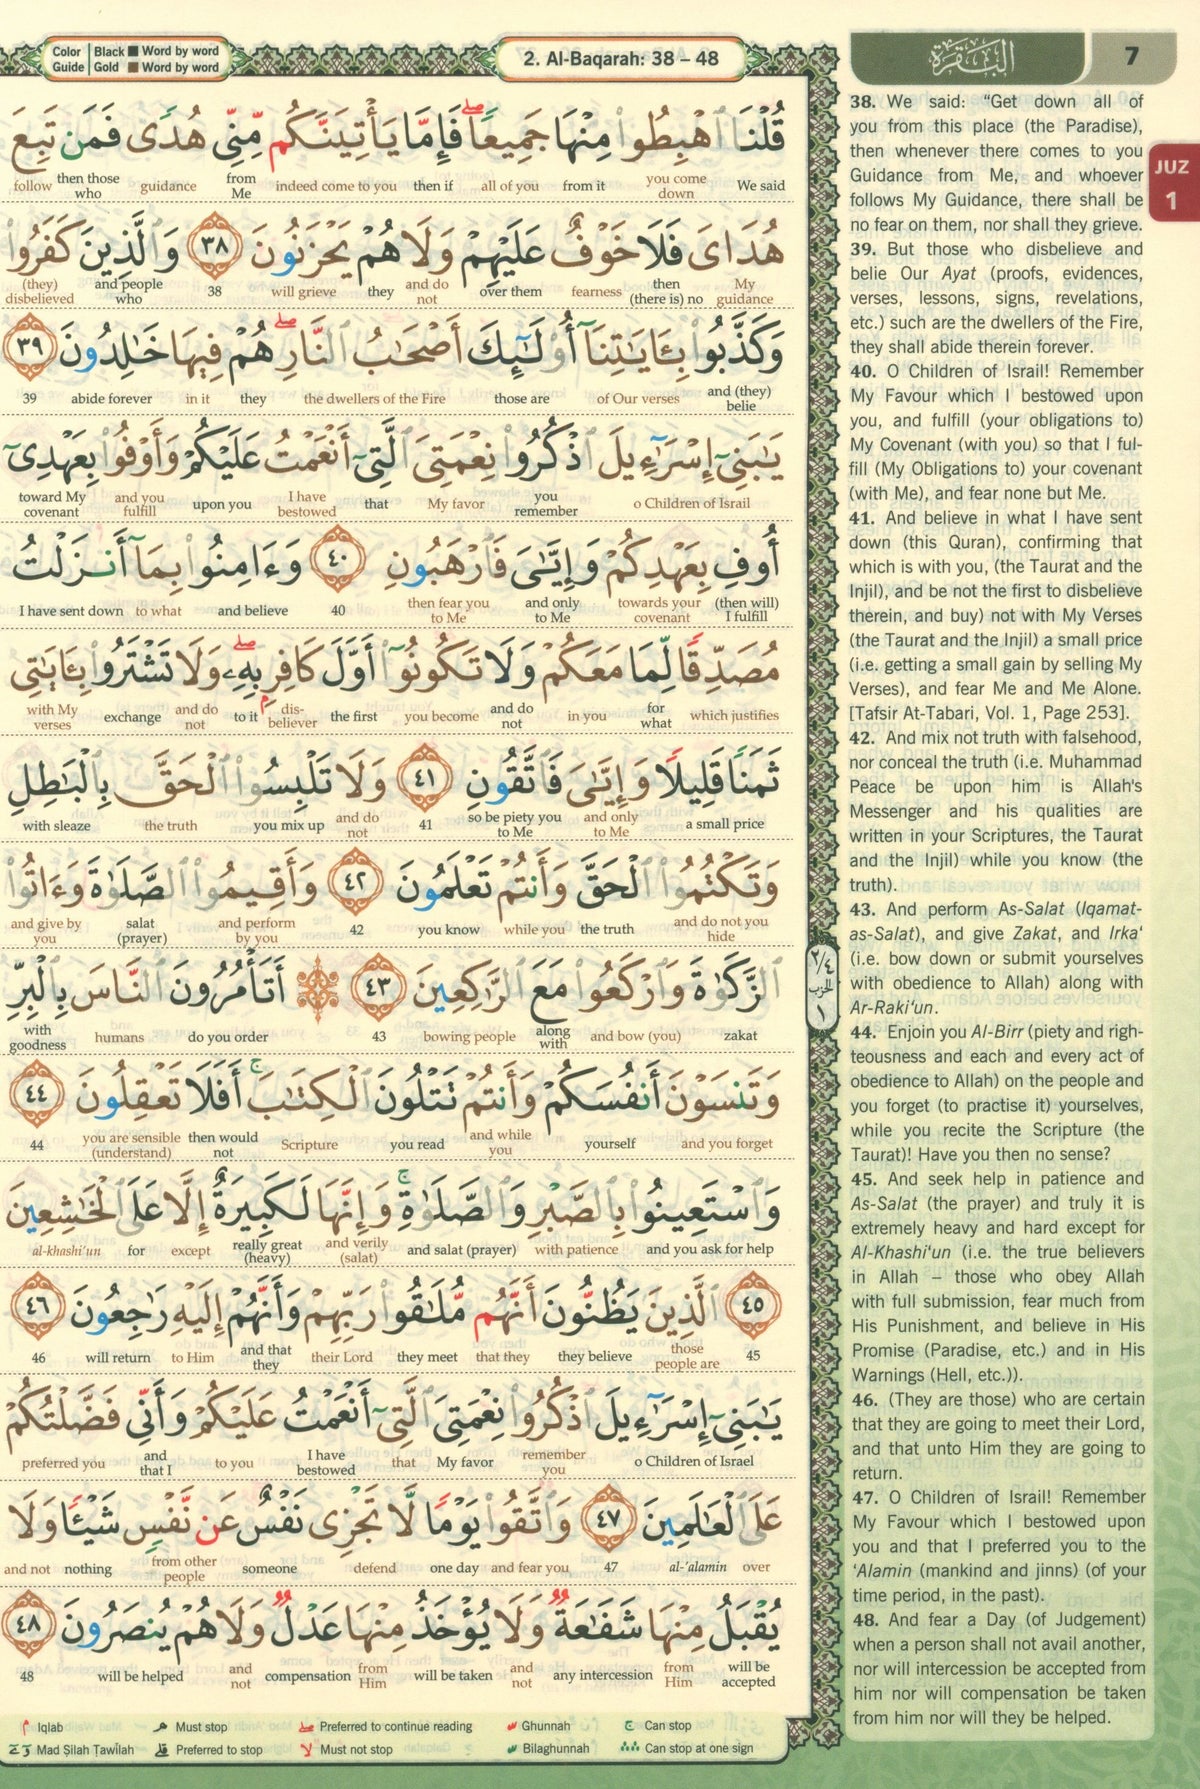 Color Guide | Black ■ Word by word
Gold ■ Word by word
2. Al-Baqarah: 38 – 48
البقرة
7
JUZ
1
قُلْنَا ٱهْبِطُوا۟ مِنْهَا جَمِيعًا ۖ فَإِمَّا يَأْتِيَنَّكُم مِّنِّى هُدًى فَمَن تَبِعَ
We said you come down from it all of you then if indeed come to you from Me guidance then those who follow
هُدَاىَ فَلَا خَوْفٌ عَلَيْهِمْ وَلَا هُمْ يَحْزَنُونَ ٣٨ وَٱلَّذِينَ كَفَرُوا۟
My guidance then (there is) no fearness over them and do not they will grieve 38 and people who (they) disbelieved
وَكَذَّبُوا۟ بِـَٔايَٰتِنَآ أُو۟لَٰٓئِكَ أَصْحَٰبُ ٱلنَّارِ ۖ هُمْ فِيهَا خَٰلِدُونَ ٣٩
and (they) belie of Our verses those are the dwellers of the Fire they in it abide forever 39
يَٰبَنِىٓ إِسْرَٰٓءِيلَ ٱذْكُرُوا۟ نِعْمَتِىَ ٱلَّتِىٓ أَنْعَمْتُ عَلَيْكُمْ وَأَوْفُوا۟ بِعَهْدِىٓ
o Children of Israil you remember My favor that I have bestowed upon you and you fulfill toward My covenant
أُوفِ بِعَهْدِكُمْ وَإِيَّٰىَ فَٱرْهَبُونِ ٤٠ وَءَامِنُوا۟ بِمَآ أَنزَلْتُ
(then will) I fulfill towards your covenant and only to Me then fear you to Me 40 and believe to what I have sent down
مُصَدِّقًا لِّمَا مَعَكُمْ وَلَا تَكُونُوٓا۟ أَوَّلَ كَافِرٍۭ بِهِۦ ۖ وَلَا تَشْتَرُوا۟ بِـَٔايَٰتِى
which justifies for what in you and do not you become the first dis-believer to it and do not exchange with My verses
ثَمَنًا قَلِيلًا وَإِيَّٰىَ فَٱتَّقُونِ ٤١ وَلَا تَلْبِسُوا۟ ٱلْحَقَّ بِٱلْبَٰطِلِ
a small price and only to Me so be piety you to Me 41 and do not you mix up the truth with sleaze
وَتَكْتُمُوا۟ ٱلْحَقَّ وَأَنتُمْ تَعْلَمُونَ ٤٢ وَأَقِيمُوا۟ ٱلصَّلَوٰةَ وَءَاتُوا۟
and do not you hide the truth while you you know 42 and perform by you salat (prayer) and give by you
ٱلزَّكَوٰةَ وَٱرْكَعُوا۟ مَعَ ٱلرَّٰكِعِينَ ٤٣ أَتَأْمُرُونَ ٱلنَّاسَ بِٱلْبِرِّ
zakat and bow (you) along with bowing people 43 do you order humans with goodness
٢/٤ الحزب ١
وَتَنسَوْنَ أَنفُسَكُمْ وَأَنتُمْ تَتْلُونَ ٱلْكِتَٰبَ ۚ أَفَلَا تَعْقِلُونَ ٤٤
and you forget yourself and while you you read Scripture then would not you are sensible (understand) 44
وَٱسْتَعِينُوا۟ بِٱلصَّبْرِ وَٱلصَّلَوٰةِ ۚ وَإِنَّهَا لَكَبِيرَةٌ إِلَّا عَلَى ٱلْخَٰشِعِينَ
and you ask for help with patience and salat (prayer) and verily (salat) really great (heavy) except for al-khashi'un
٤٥ ٱلَّذِينَ يَظُنُّونَ أَنَّهُم مُّلَٰقُوا۟ رَبِّهِمْ وَأَنَّهُمْ إِلَيْهِ رَٰجِعُونَ ٤٦
45 those people are they believe that they they meet their Lord and that they to Him will return 46
يَٰبَنِىٓ إِسْرَٰٓءِيلَ ٱذْكُرُوا۟ نِعْمَتِىَ ٱلَّتِىٓ أَنْعَمْتُ عَلَيْكُمْ وَأَنِّى فَضَّلْتُكُمْ
o Children of Israel remember you My favor that I have bestowed to you and that I preferred you
عَلَى ٱلْعَٰلَمِينَ ٤٧ وَٱتَّقُوا۟ يَوْمًا لَّا تَجْزِى نَفْسٌ عَن نَّفْسٍ شَيْـًٔا وَلَا
over al-'alamin 47 and fear you one day defend someone from other people nothing and not
يُقْبَلُ مِنْهَا شَفَٰعَةٌ وَلَا يُؤْخَذُ مِنْهَا عَدْلٌ وَلَا هُمْ يُنصَرُونَ ٤٨
will be accepted from Him any intercession and not will be taken from Him compensation and not will be helped 48
38. We said: “Get down all of
you from this place (the Paradise),
then whenever there comes to you
Guidance from Me, and whoever
follows My Guidance, there shall be
no fear on them, nor shall they grieve.
39. But those who disbelieve and
belie Our Ayat (proofs, evidences,
verses, lessons, signs, revelations,
etc.) such are the dwellers of the Fire,
they shall abide therein forever.
40. O Children of Israil! Remember
My Favour which I bestowed upon
you, and fulfill (your obligations to)
My Covenant (with you) so that I ful-
fill (My Obligations to) your covenant
(with Me), and fear none but Me.
41. And believe in what I have sent
down (this Quran), confirming that
which is with you, (the Taurat and the
Injil), and be not the first to disbelieve
therein, and buy) not with My Verses
(the Taurat and the Injil) a small price
(i.e. getting a small gain by selling My
Verses), and fear Me and Me Alone.
[Tafsir At-Tabari, Vol. 1, Page 253].
42. And mix not truth with falsehood,
nor conceal the truth (i.e. Muhammad
Peace be upon him is Allah's
Messenger and his qualities are
written in your Scriptures, the Taurat
and the Injil) while you know (the
truth).
43. And perform As-Salat (Iqamat-
as-Salat), and give Zakat, and Irka‘
(i.e. bow down or submit yourselves
with obedience to Allah) along with
Ar-Raki‘un.
44. Enjoin you Al-Birr (piety and righ-
teousness and each and every act of
obedience to Allah) on the people and
you forget (to practise it) yourselves,
while you recite the Scripture (the
Taurat)! Have you then no sense?
45. And seek help in patience and
As-Salat (the prayer) and truly it is
extremely heavy and hard except for
Al-Khashi‘un (i.e. the true believers
in Allah – those who obey Allah
with full submission, fear much from
His Punishment, and believe in His
Promise (Paradise, etc.) and in His
Warnings (Hell, etc.)).
46. (They are those) who are certain
that they are going to meet their Lord,
and that unto Him they are going to
return.
47. O Children of Israil! Remember
My Favour which I bestowed upon
you and that I preferred you to the
‘Alamin (mankind and jinns) (of your
time period, in the past).
48. And fear a Day (of Judgement)
when a person shall not avail another,
nor will intercession be accepted from
him nor will compensation be taken
from him nor will they be helped.
م Iqlab مـ Must stop صلى Preferred to continue reading Ghunnah ج Can stop
Mad Silah Tawilah قلى Preferred to stop لا Must not stop Bilaghunnah ∴ ∴ Can stop at one sign